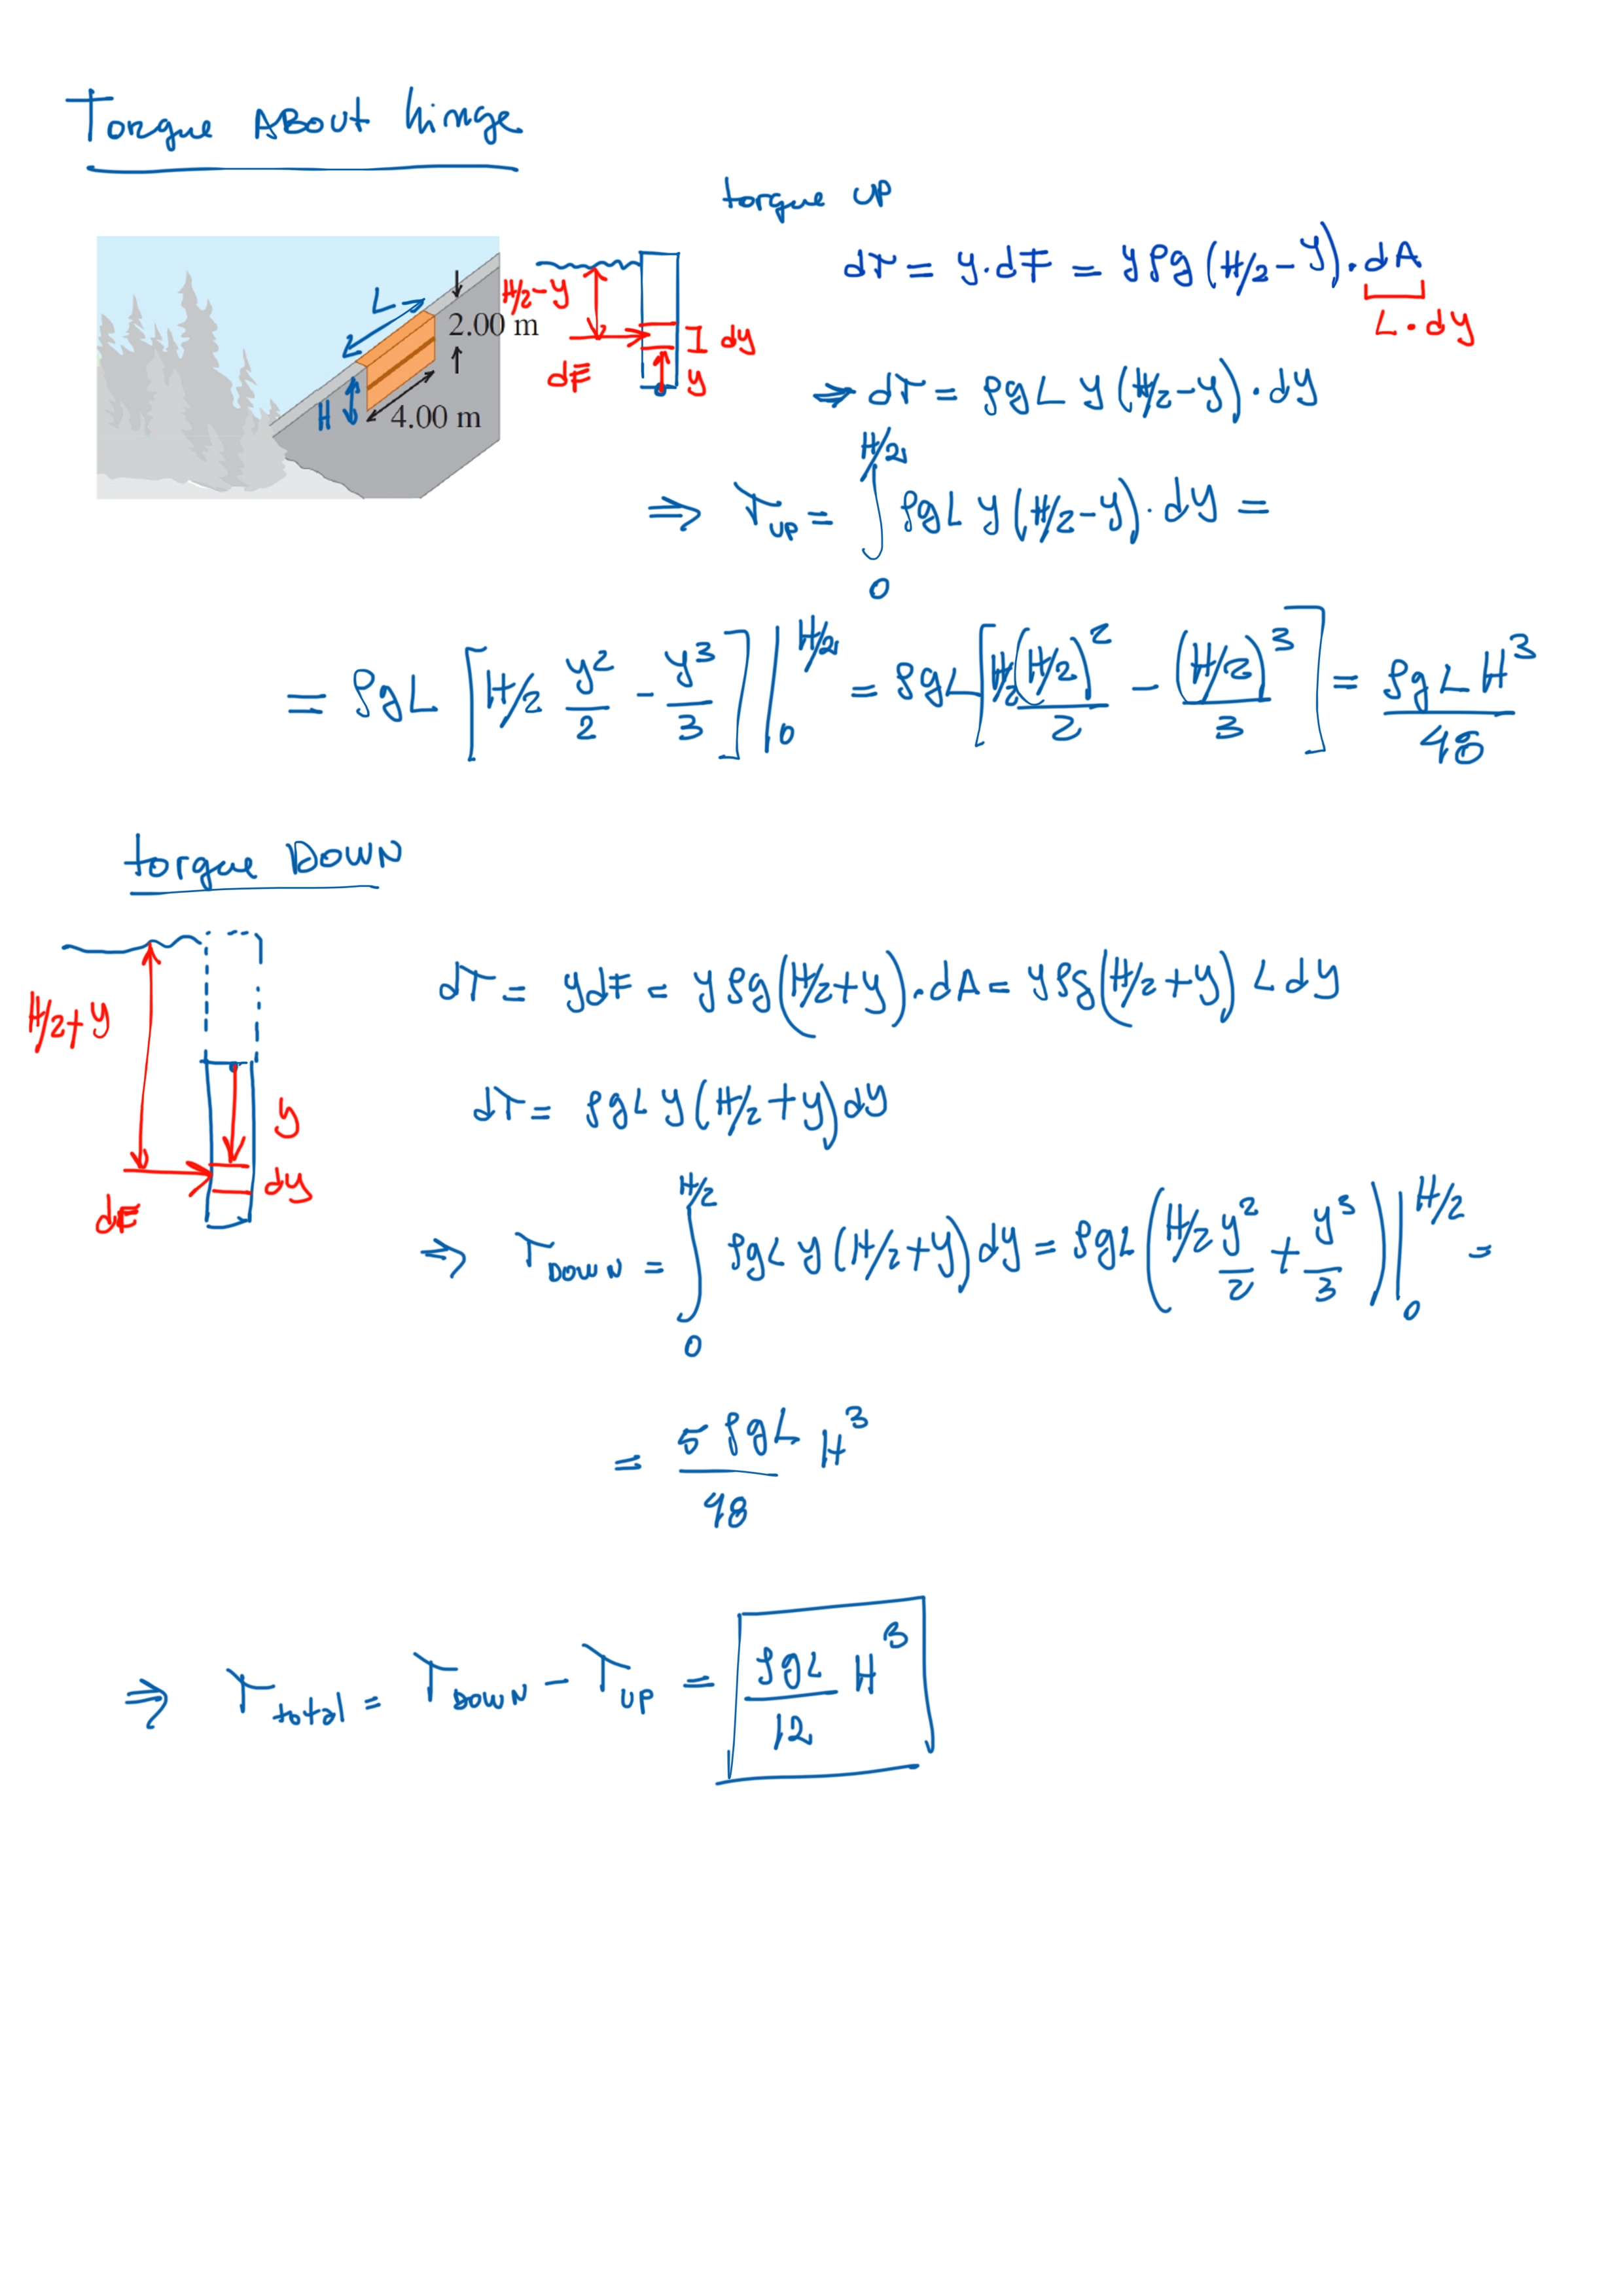 Torque About hinge
torque up
dτ = y·dF = yρg(H/2-y)·dA
L·dy
L
2.00 m
H
4.00 m
H/2-y
dF
dy
y
⇒ dτ = ρgL y(H/2-y)·dy
⇒ τ_UP = ∫_0^{H/2} ρgL y(H/2-y)·dy =
= ρgL [H/2 y²/2 - y³/3] |_0^{H/2} = ρgL[H/2 (H/2)²/2 - (H/2)³/3] = ρgLH³/48
torque Down
H/2+y
y
dy
dF
dτ = ydF = yρg(H/2+y)·dA = yρg(H/2+y) L dy
dτ = ρgL y(H/2+y)dy
⇒ τ_DOWN = ∫_0^{H/2} ρgL y(H/2+y)dy = ρgL(H/2 y²/2 + y³/3)|_0^{H/2} =
= 5ρgL/48 H³
⇒ τ_total = τ_DOWN - τ_UP = ρgL/12 H³